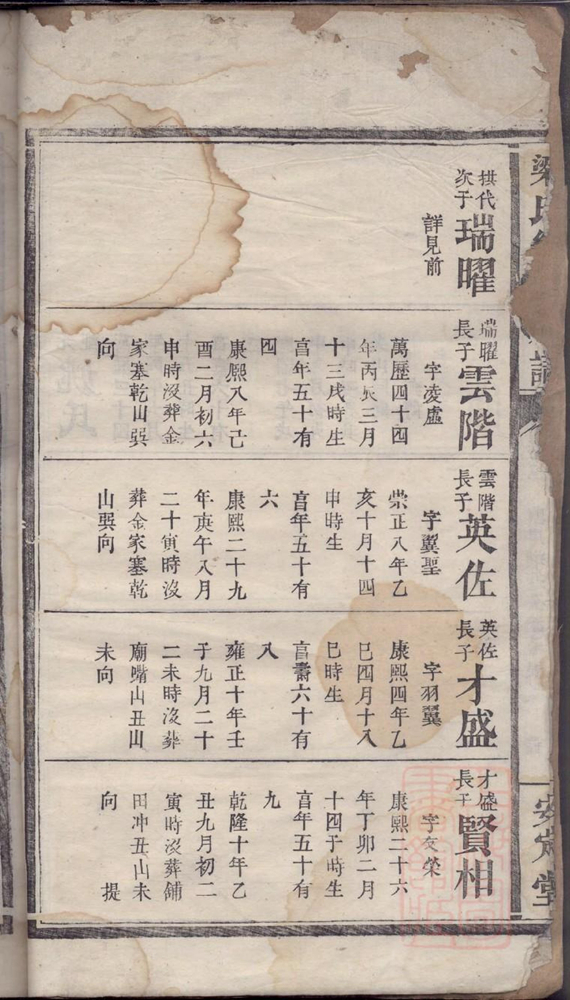 拱代
次子
瑞曜
詳見前
瑞曜
長子
雲階
字凌虛
萬歷四十四
年丙辰三月
十三戌時生
亯年五十有
四
康熙八年己
酉二月初六
申時沒葬金
家塞乾山巽
向
雲階
長子
英佐
字翼聖
崇正八年乙
亥十月十四
申時生
亯年五十有
六
康熙二十九
年庚午八月
二十寅時沒
葬金家塞乾
山巽向
英佐
長子
才盛
字羽翼
康熙四年乙
巳四月十八
巳時生
亯壽六十有
八
雍正十年壬
子九月二十
二未時沒葬
廟嘴山丑山
未向
才盛
長子
賢相
字文榮
康熙二十六
年丁卯二月
十四子時生
亯年五十有
九
乾隆十年乙
丑九月初二
寅時沒葬鋪
田冲丑山未
向 提
安定堂